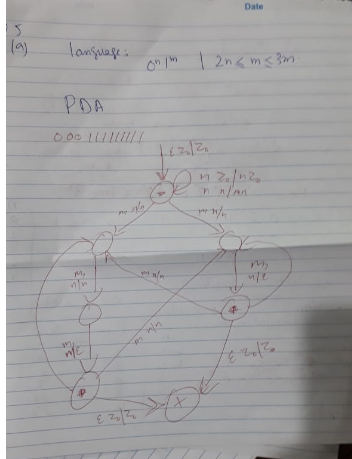 Date
5
(a) language: 0ⁿ1ᵐ | 2n ≤ m ≤ 3m
PDA
000111111111
ε z₀|z₀
n z₀/nz₀
n n/nn
m n/n
m n/n
m, n/n
m n/n
m, n/ε
m n/n
m, n/ε
ε z₀|z₀
ε z₀|z₀